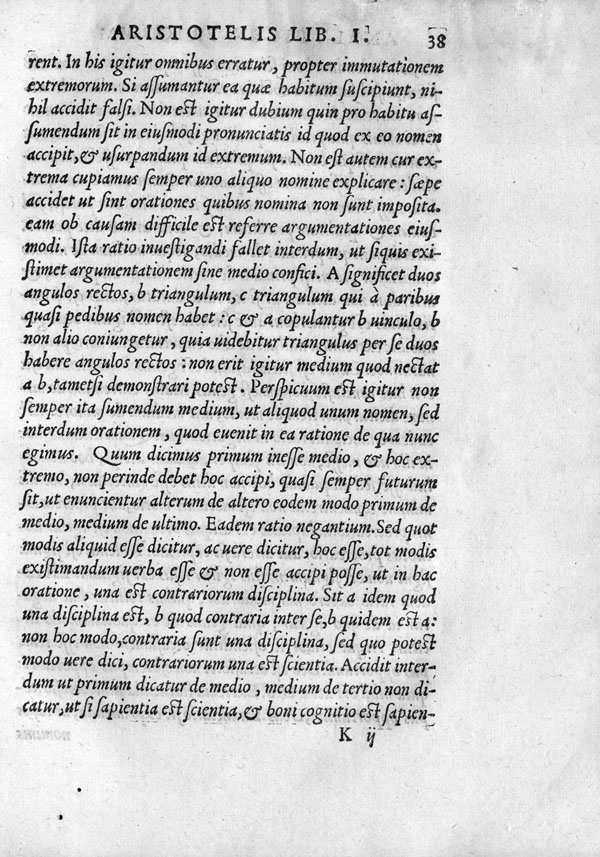 ARISTOTELIS LIB. I. 38
rent. In his igitur omnibus erratur, propter immutationem
extremorum. Si aſſumantur ea quæ habitum ſuſcipiunt, ni-
hil accidit falſi. Non est igitur dubium quin pro habitu aſ-
ſumendum ſit in eiuſmodi pronunciatis id quod ex eo nomen
accipit, & uſurpandum id extremum. Non eſt autem cur ex-
trema cupiamus ſemper uno aliquo nomine explicare: ſæpe
accidet ut ſint orationes quibus nomina non ſunt impoſita.
eam ob cauſam difficile est referre argumentationes eiuſ-
modi. Iſta ratio inuestigandi fallet interdum, ut ſiquis exi-
ſtimet argumentationem ſine medio confici. A ſignificet duos
angulos rectos, b triangulum, c triangulum qui à paribus
quaſi pedibus nomen habet: c & a copulantur b uinculo, b
non alio coniungetur, quia uidebitur triangulus per ſe duos
habere angulos rectos: non erit igitur medium quod nectat
a b, tametſi demonſtrari potest. Perſpicuum est igitur non
ſemper ita ſumendum medium, ut aliquod unum nomen, ſed
interdum orationem, quod euenit in ea ratione de qua nunc
egimus. Quum dicimus primum ineſſe medio, & hoc ex-
tremo, non perinde debet hoc accipi, quaſi ſemper futurum
ſit, ut enuncientur alterum de altero eodem modo primum de
medio, medium de ultimo. Eadem ratio negantium. Sed quot
modis aliquid eſſe dicitur, ac uere dicitur, hoc eſſe, tot modis
exiſtimandum uerba eſſe & non eſſe accipi poſſe, ut in hac
oratione, una est contrariorum diſciplina. Sit a idem quod
una diſciplina est, b quod contraria inter ſe, b quidem est a:
non hoc modo, contraria ſunt una diſciplina, ſed quo potest
modo uere dici, contrariorum una est ſcientia. Accidit inter-
dum ut primum dicatur de medio, medium de tertio non di-
catur, ut ſi ſapientia est ſcientia, & boni cognitio est ſapien-
K ij